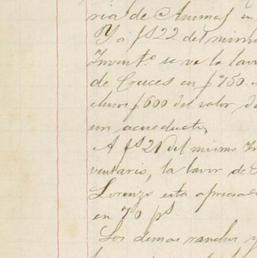 ria de Animas en
Y a fs 22 del mismo
Invent.º se ve la lavor
de Cruces en $ 750. 
$ 600 del valor de
un acueducto,
A fs 21 del mismo In
ventario, la lavor de S
Lorenzo esta apreciada
en 70 ps
Los demas ranchos y